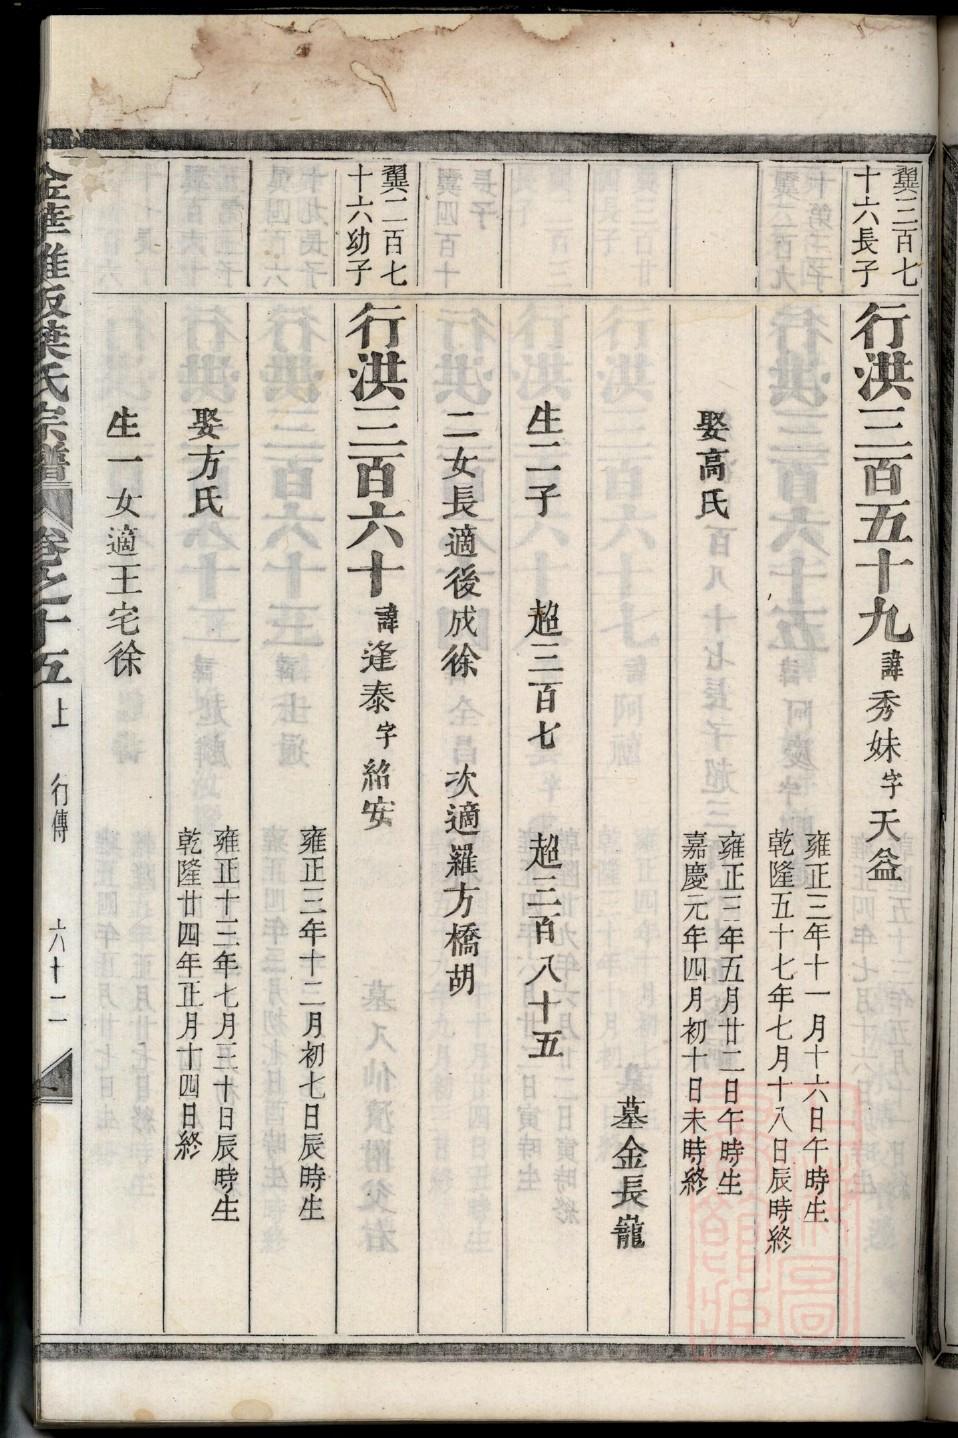 翼三百七
十六長子
行洪三百五十九 諱秀妹字天益
雍正三年十一月十六日午時生
乾隆五十七年七月十八日辰時終
娶高氏
雍正三年五月廿二日午時生
嘉慶元年四月初十日未時終
墓金長巃
生二子 超三百七 超三百八十五
二女長適後成徐 次適羅方橋胡
翼二百七
十六幼子
行洪三百六十 諱逢泰字紹安
雍正三年十二月初七日辰時生
娶方氏
雍正十三年七月三十日辰時生
乾隆廿四年正月十四日終
生一女適王宅徐
金華雅畈葉氏宗譜 卷之十五上 行傳 六十二